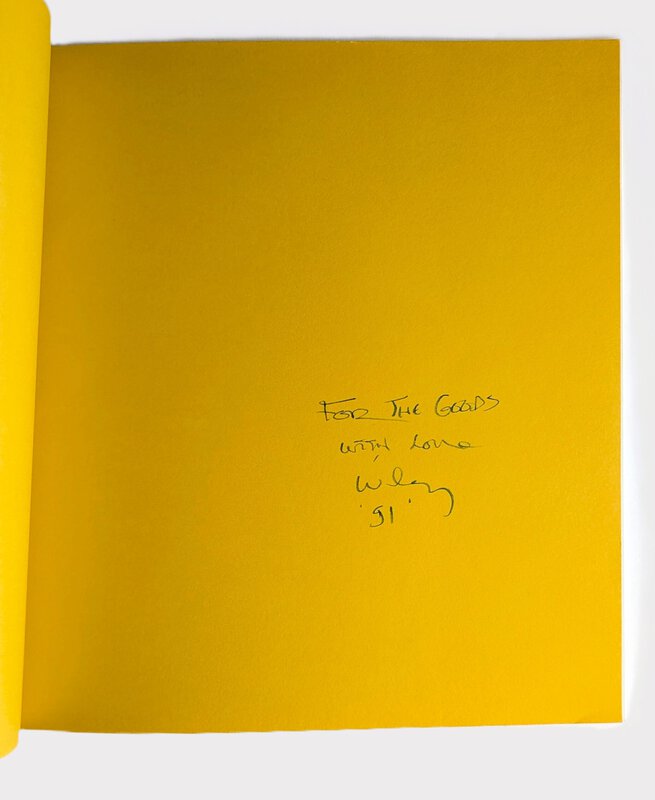 FOR THE GOODS
WITH Love
'91'